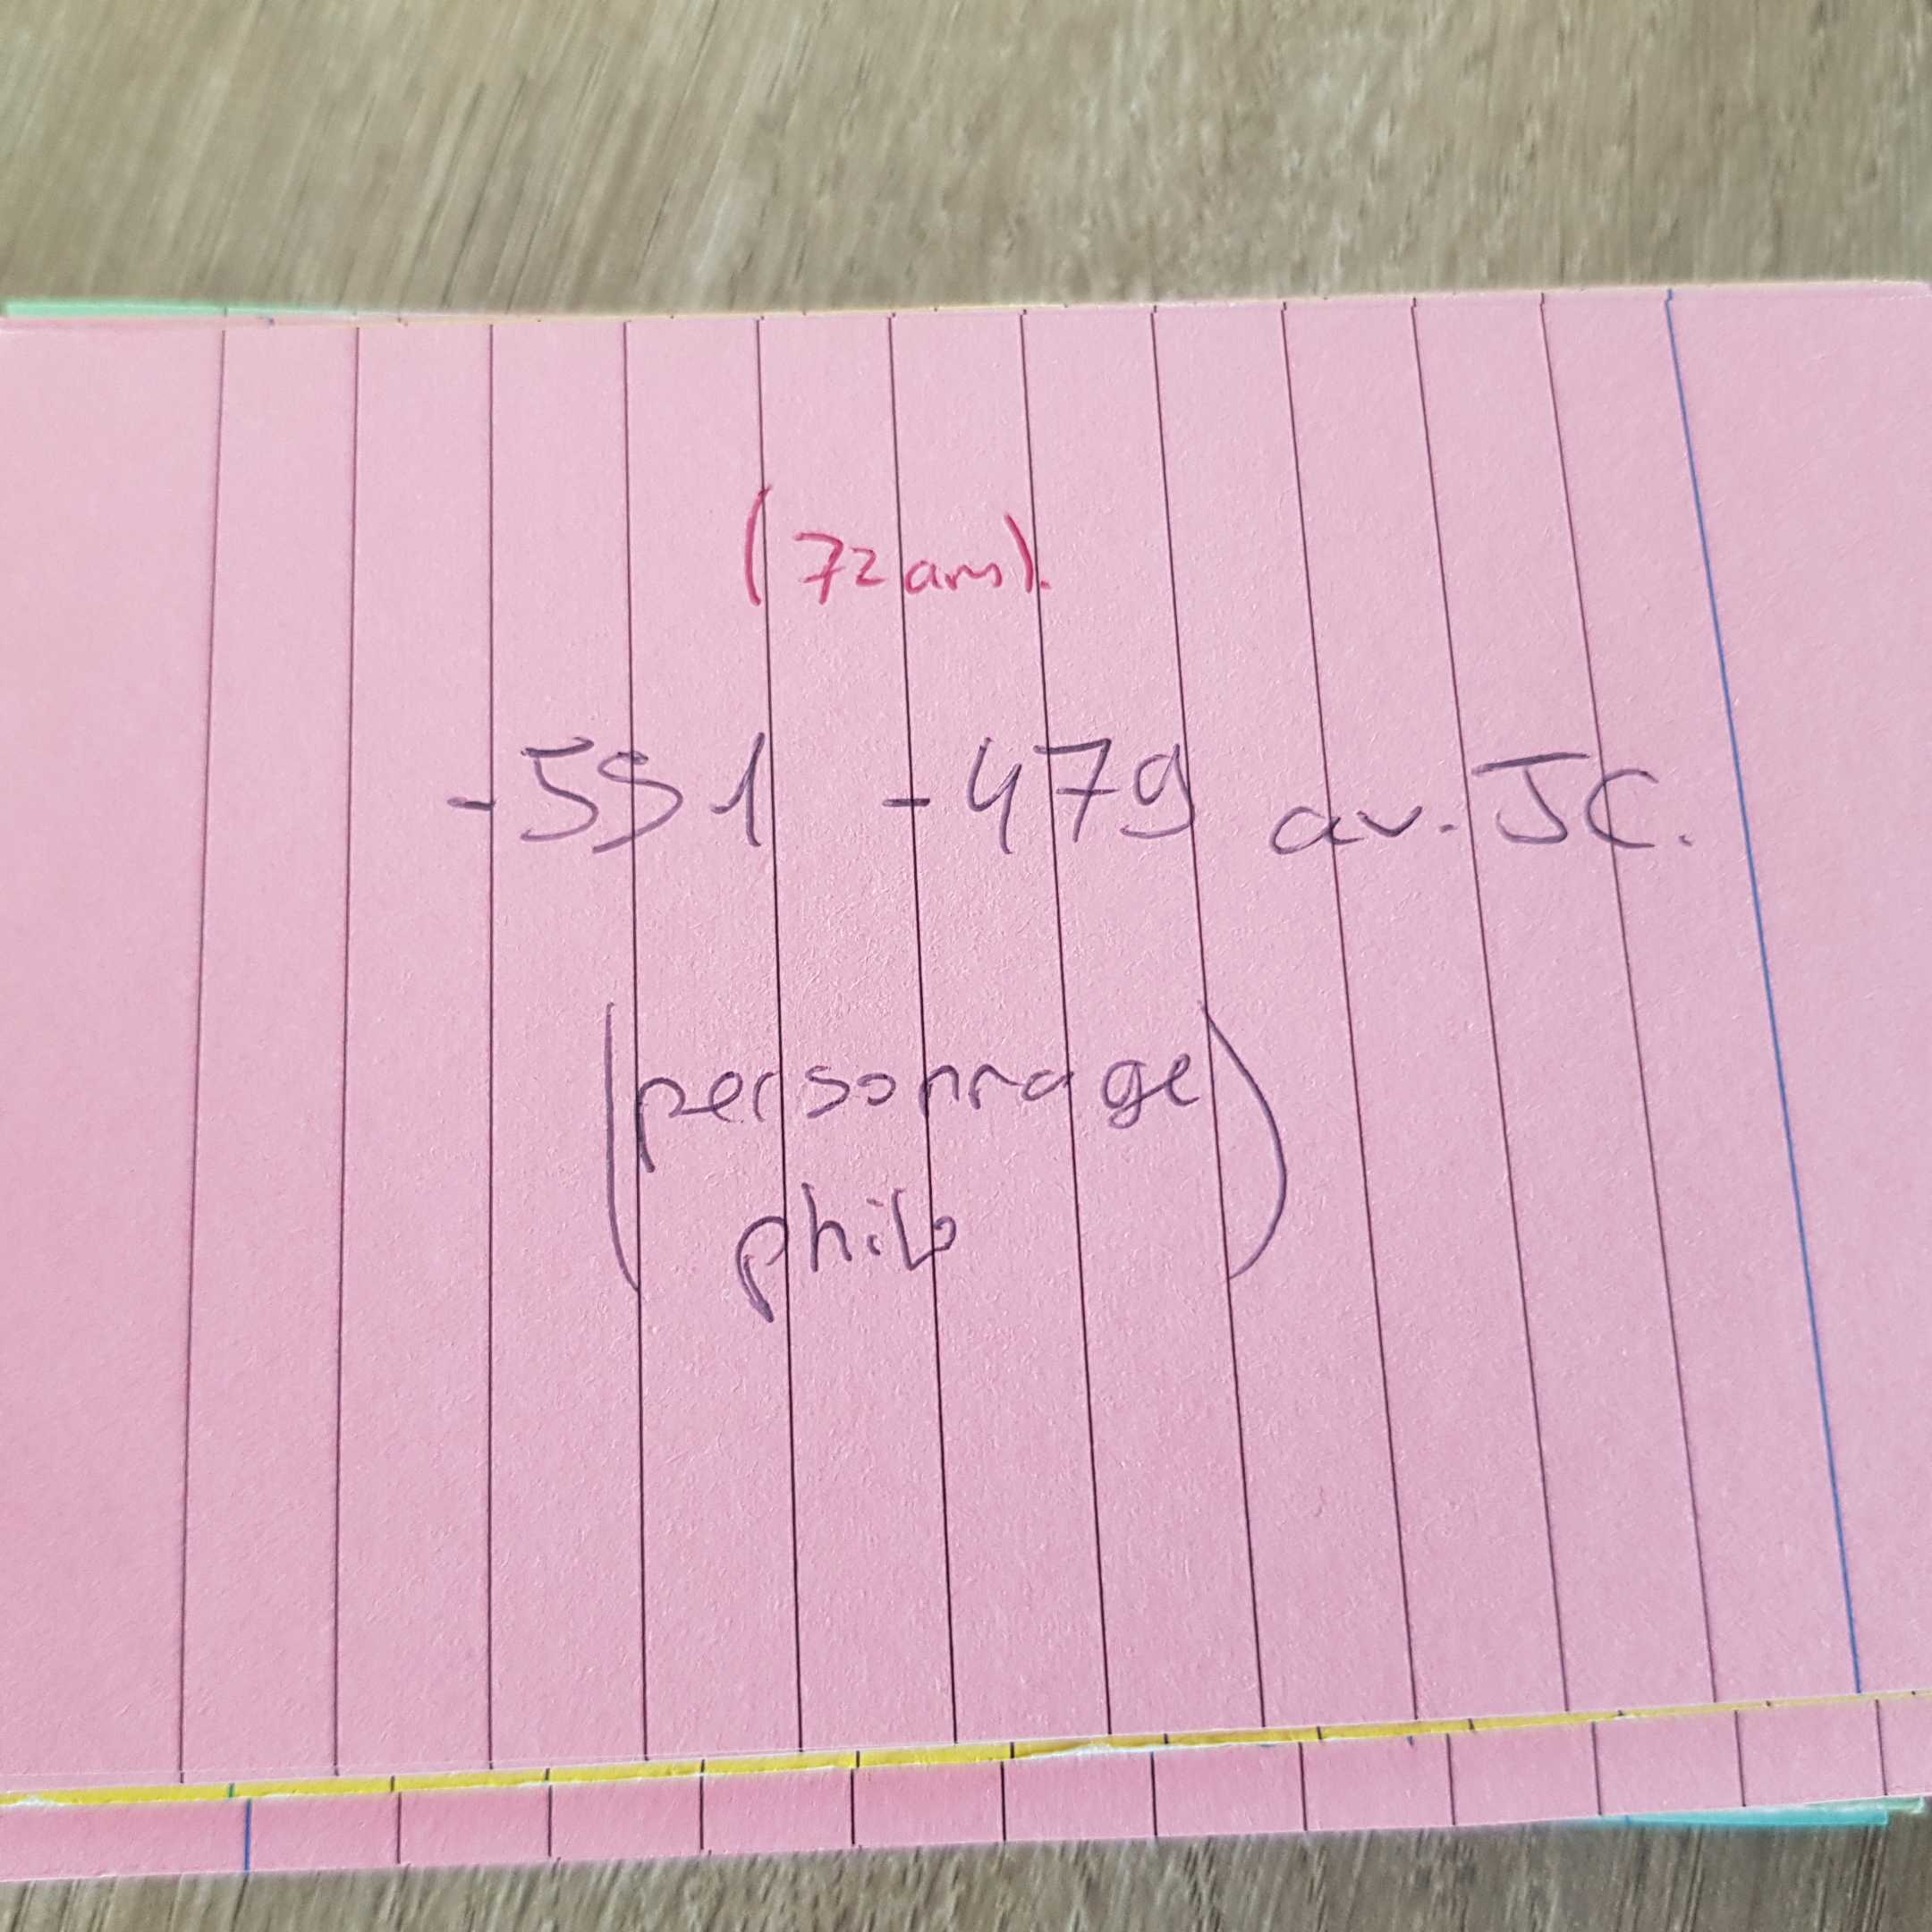 (72 ans).
-551 -479 av. JC.
(personnage
philo)